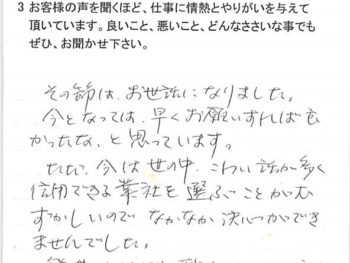 3 お客様の声を聞くほど、仕事に情熱とやりがいを与えて
頂いています。良いこと、悪いこと、どんなささいな事でも
ぜひ、お聞かせ下さい。
その節は、お世話になりました。
今となっては、早くお願いすれば良
かったな、と思っています。
ただ、今は世の中、こわい話が多く
信用できる業社を選ぶことがむ
ずかしいので なかなか決心ができ
ませんでした。